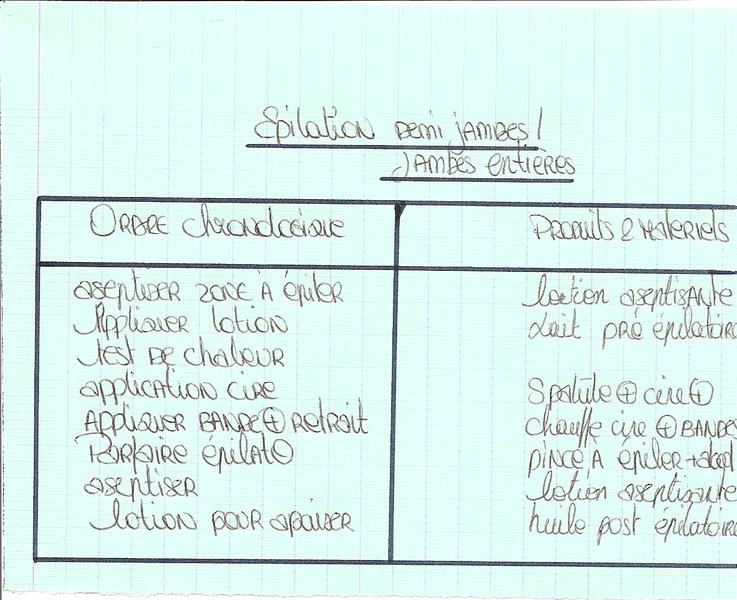 Epilation Demi jambes /
Jambes entières
Ordre chronologique
Produits & Materiels
aseptiser zone à épiler
Appliquer lotion
test de chaleur
application cire
Appliquer bande + retrait
Parfaire épilat°
aseptiser
lotion pour apaiser
lotion aseptisante
Lait pré épilatoire
Spatule + cire +
chauffe cire + Bandes
pince à épiler +
lotion aseptisante
huile post épilatoire